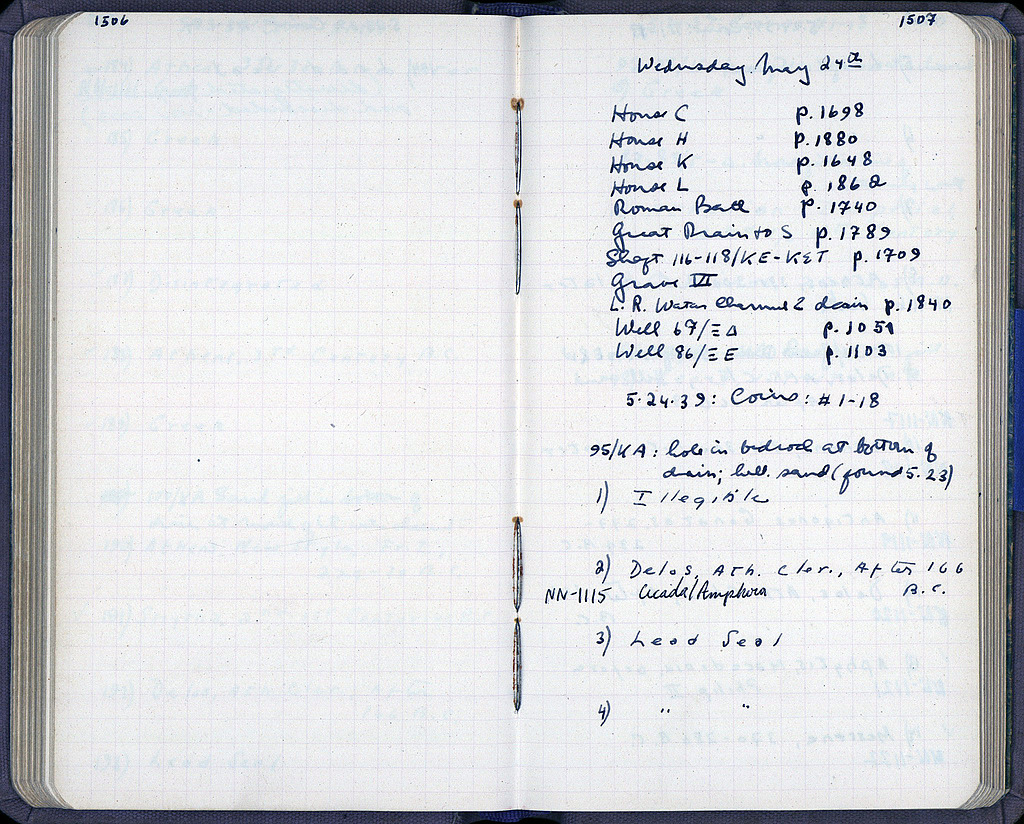 1506
1507
Wednesday May 24th
House C p. 1698
House H p. 1880
House K p. 1648
House L p. 1862
Roman Bath p. 1740
Great Drain to S p. 1789
Shaft 116-118/ΚΕ-ΚΣΤ p. 1709
Grave VI
L.R. Water Channel & drain p. 1840
Well 67/ΞΔ p. 1051
Well 86/ΞΕ p. 1103
5.24.39: Coins: #1-18
95/ΚΑ: hole in bedrock at bottom of
drain; hell. sand (found 5.23)
1) Illegible
2) Delos, Ath. Cler., After 166
NN-1115 Cicada/Amphora B.C.
3) Lead Seal
4) " "